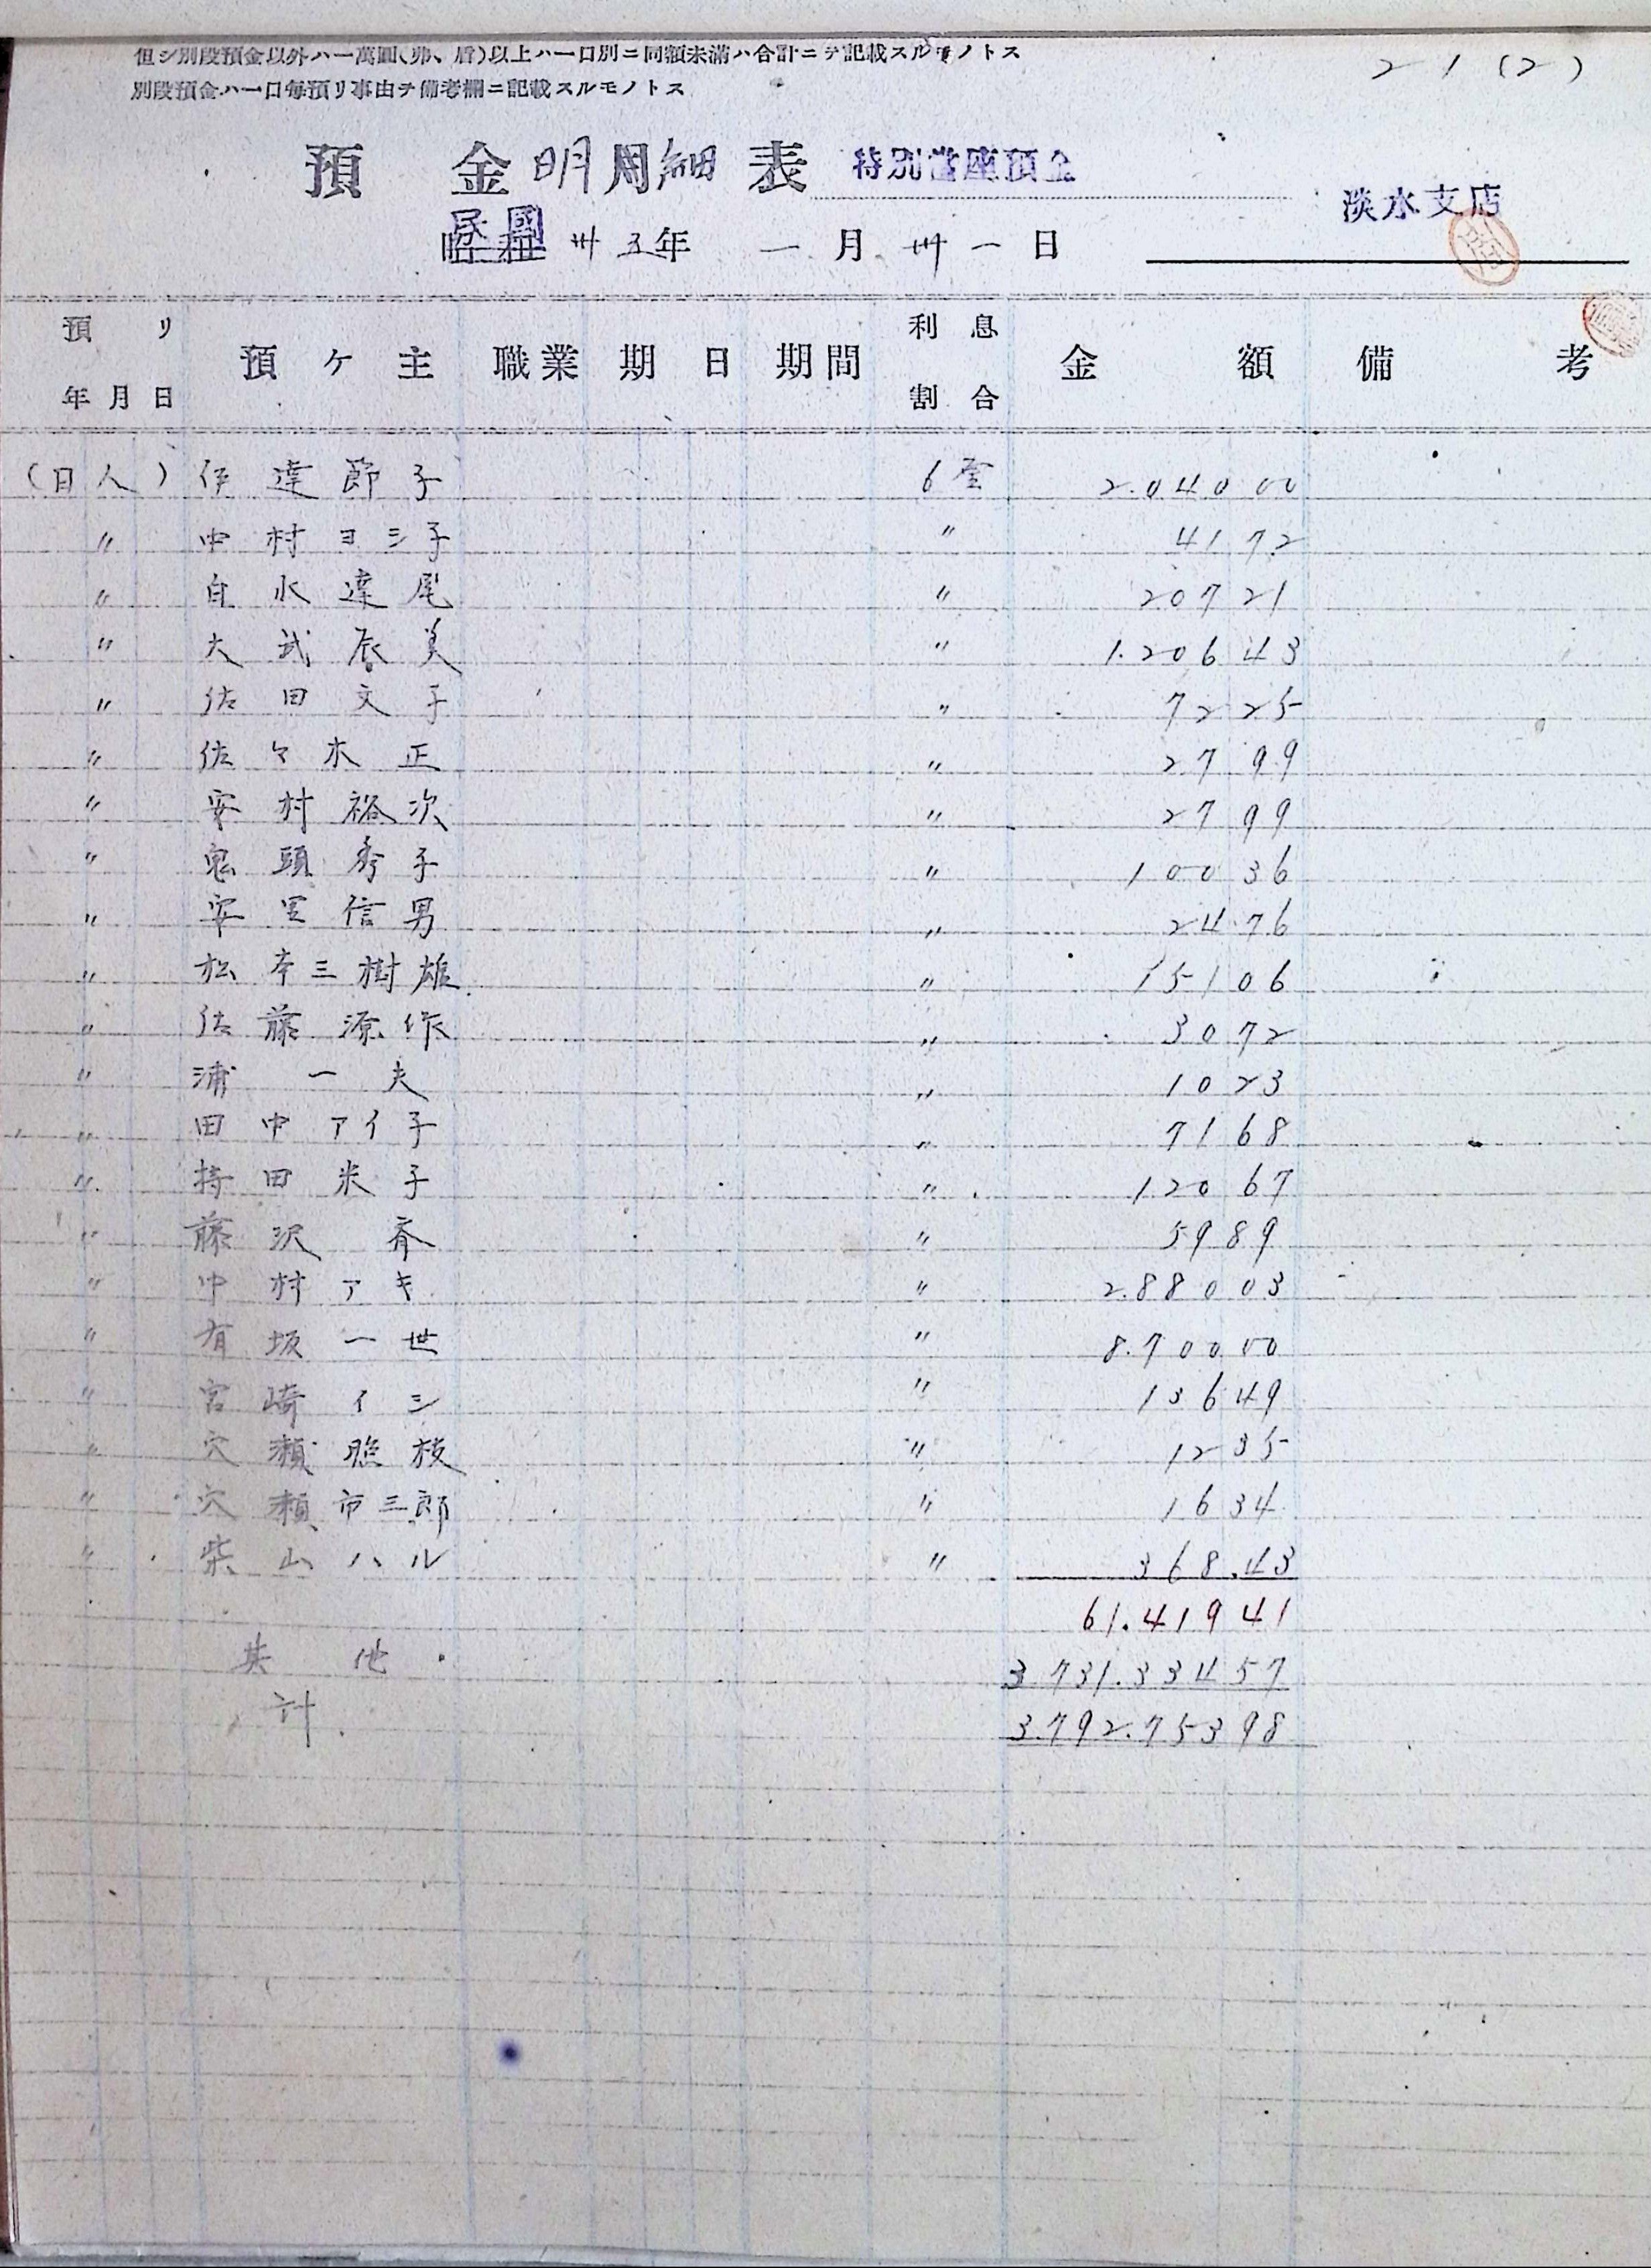 但シ別段預金以外ハ一萬圓(弗、盾)以上ハ一口別ニ同額未滿ハ合計ニテ記載スルモノトス
別段預金ハ一口每預リ事由ヲ備考欄ニ記載スルモノトス
21(2)
預金明細表 特別當座預金
淡水支店
民國 卅五年 一月卅一日
預リ年月日 預ケ主 職業 期日 期間 利息割合 金額 備考
(日人) 伊達節子 6厘 2.040 00
〃 中村ヨシ子 〃 41 72
〃 白水達尾 〃 207 21
〃 大武辰美 〃 1.206 43
〃 佐田文子 〃 72 25
〃 佐々木正 〃 27 99
〃 安村裕次 〃 27 99
〃 鬼頭秀子 〃 100 36
〃 安里信男 〃 24 76
〃 松本三樹雄 〃 151 06
〃 佐藤源作 〃 30 72
〃 浦一夫 〃 10 23
〃 田中アイ子 〃 71 68
〃 持田米子 〃 120 67
〃 藤沢斉 〃 59 89
〃 中村アキ 〃 2.880 03
〃 有坂一世 〃 8.700 00
〃 宮崎イシ 〃 136 49
〃 穴瀬照枝 〃 12 35
〃 穴瀬市三郎 〃 16 34
〃 柴山ハル 〃 368.43
61.419 41
其他 3.731.334 57
計 3.792.753 98